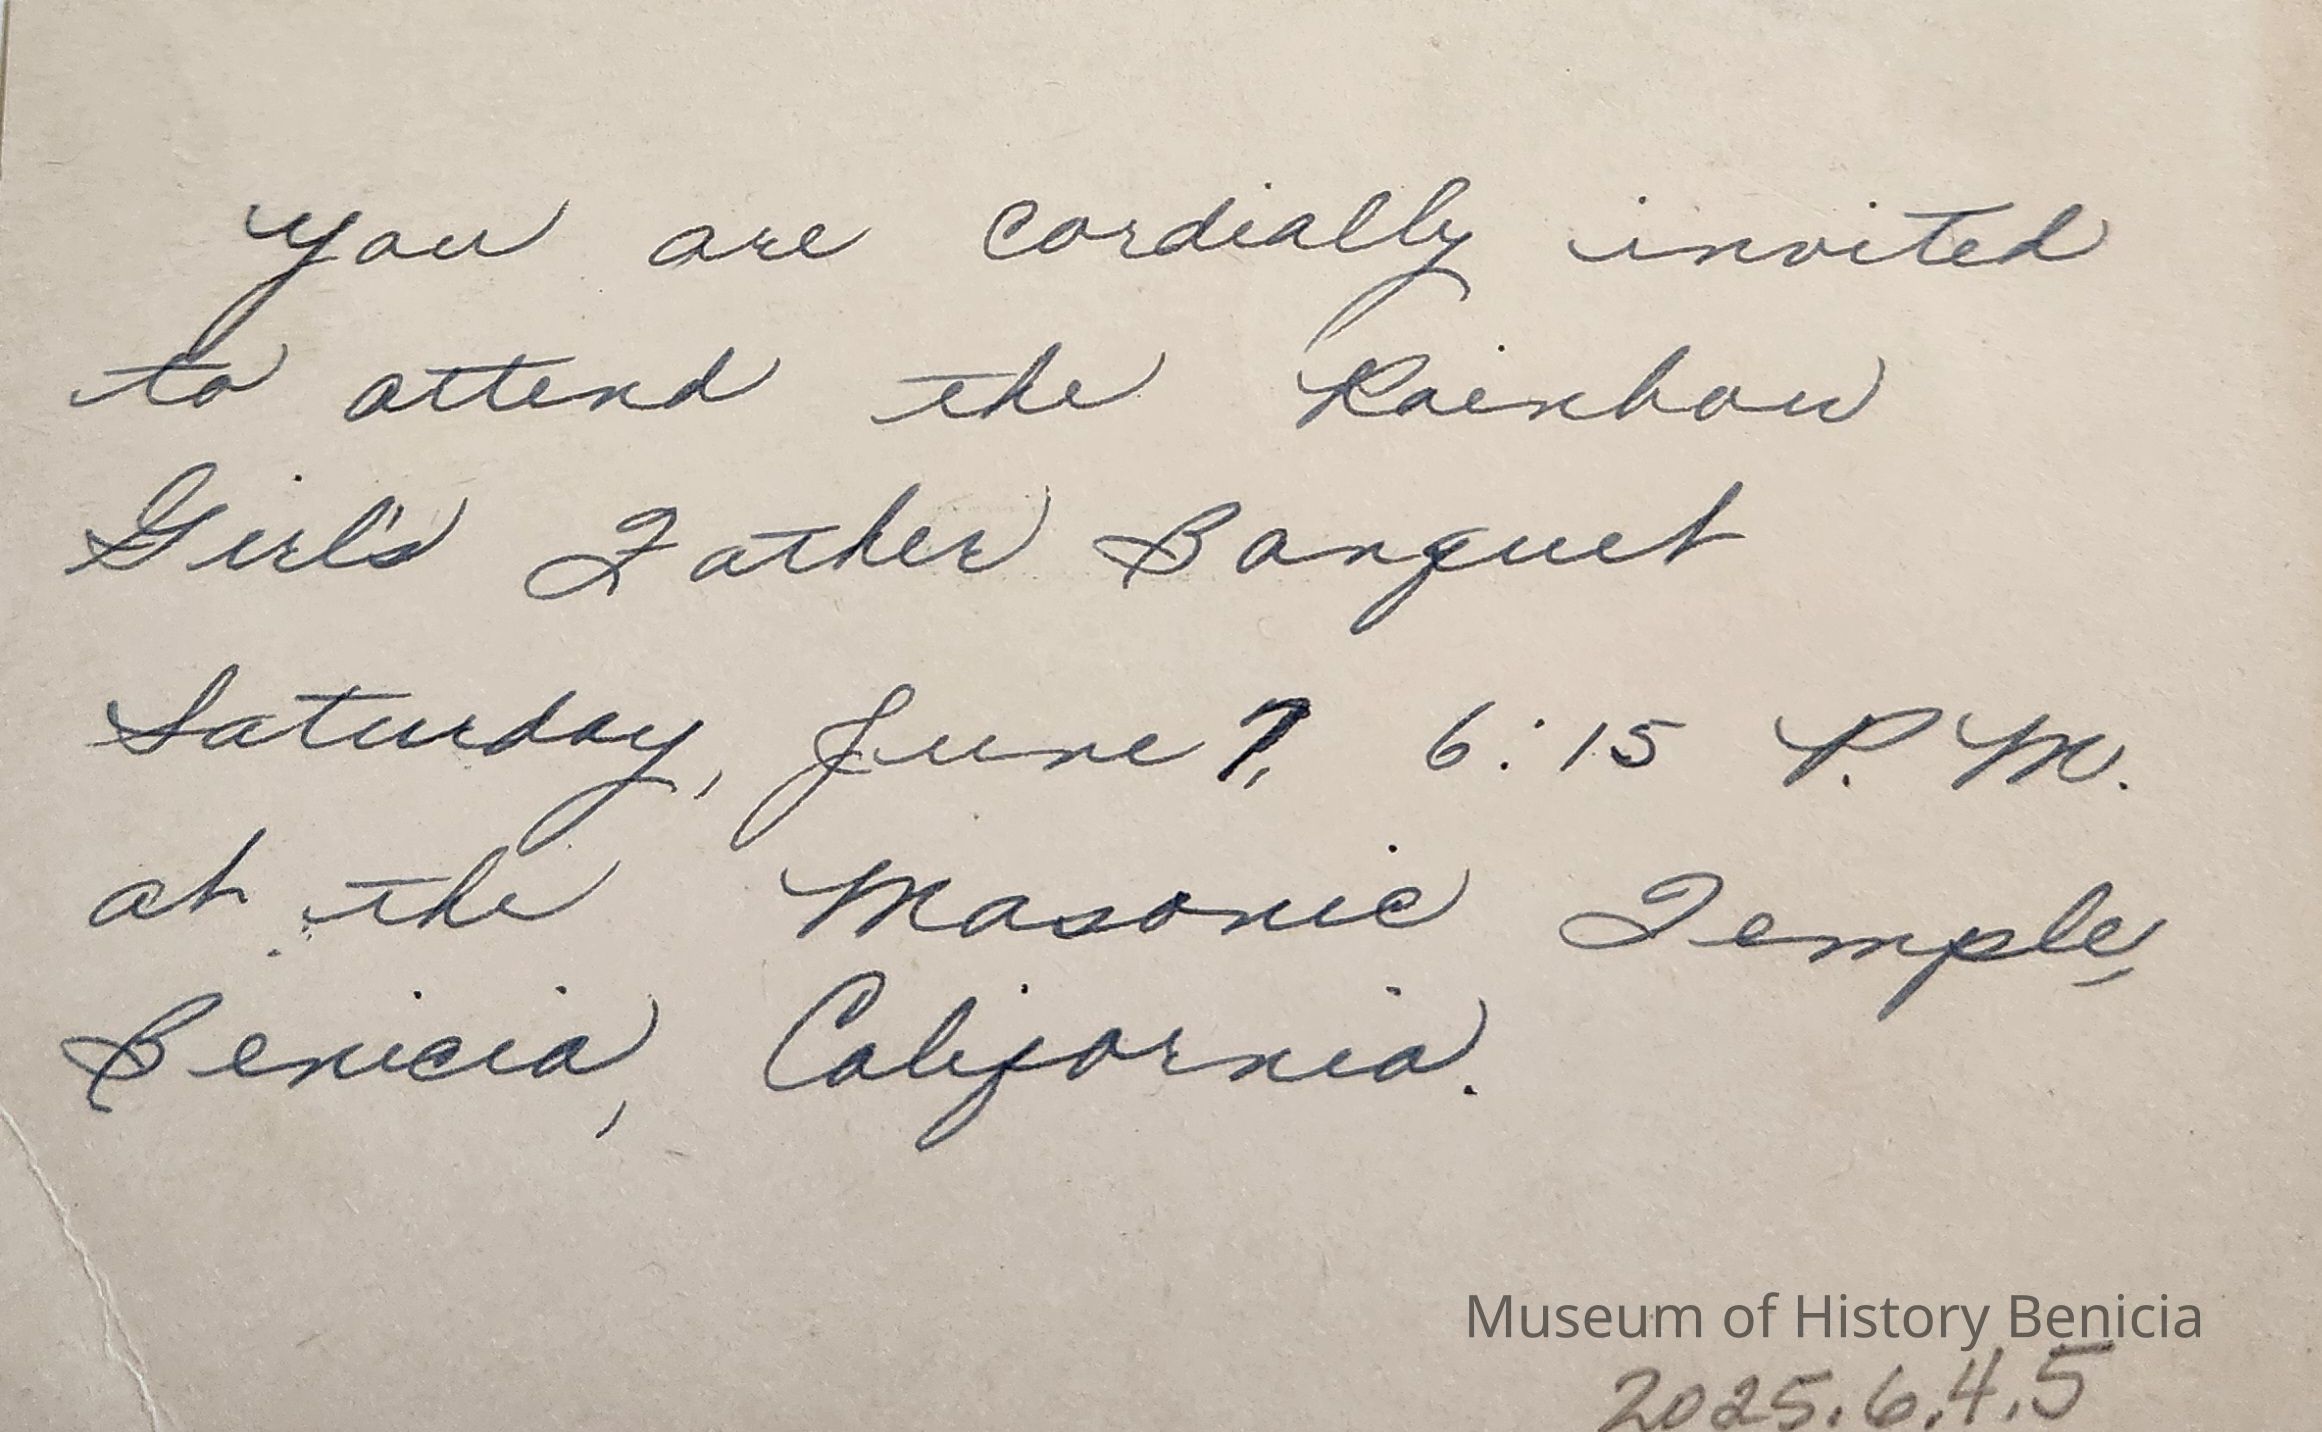 You are cordially invited
to attend the Rainbow
Girl's Father Banquet
Saturday, June 7, 6:15 P.M.
at the Masonic Temple,
Benicia, California.
Museum of History Benicia
2025.6.4.5